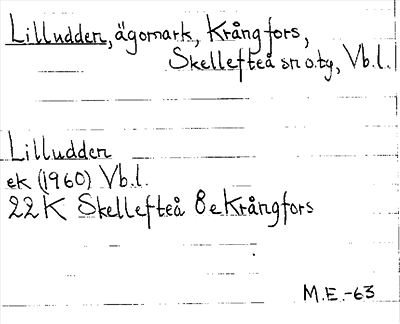 Lilludden, ägomark, Krångfors,
Skellefteå sn o. tg, Vb.l.
Lilludden
ek (1960) Vb.l.
22K Skellefteå 8e Krångfors
M.E.-63